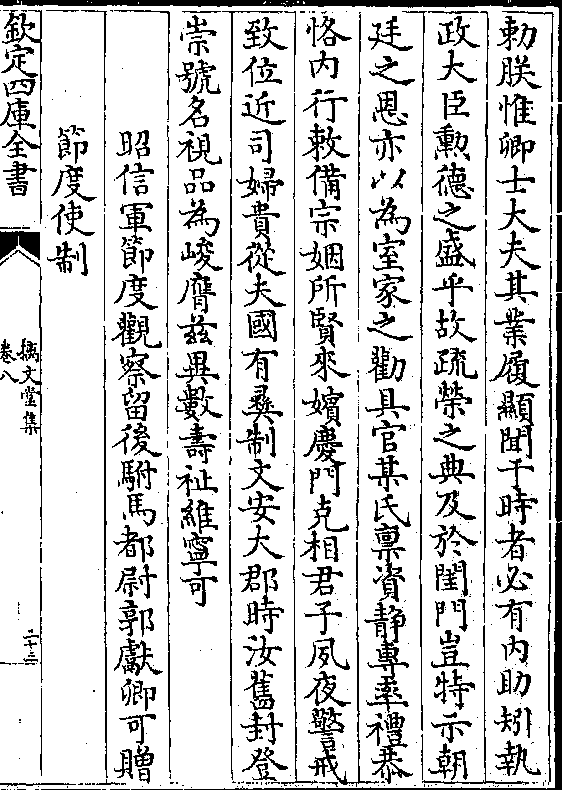 勅朕惟卿士大夫其業履顯聞于時者必有内助矧執
政大臣勲德之盛乎故疏榮之典及於閨門豈特示朝
廷之恩亦以為室家之勸具官某氏禀資静專率禮恭
恪内行敕備宗姻所賢來嬪慶門克相君子夙夜警戒
致位近司婦貴從夫國有彞制文安大郡時汝舊封登
崇號名視品為峻膺兹異數壽祉維寧可
昭信軍節度觀察留後駙馬都尉郭獻卿可贈
節度使制
欽定四庫全書
摛文堂集
卷八
二十三